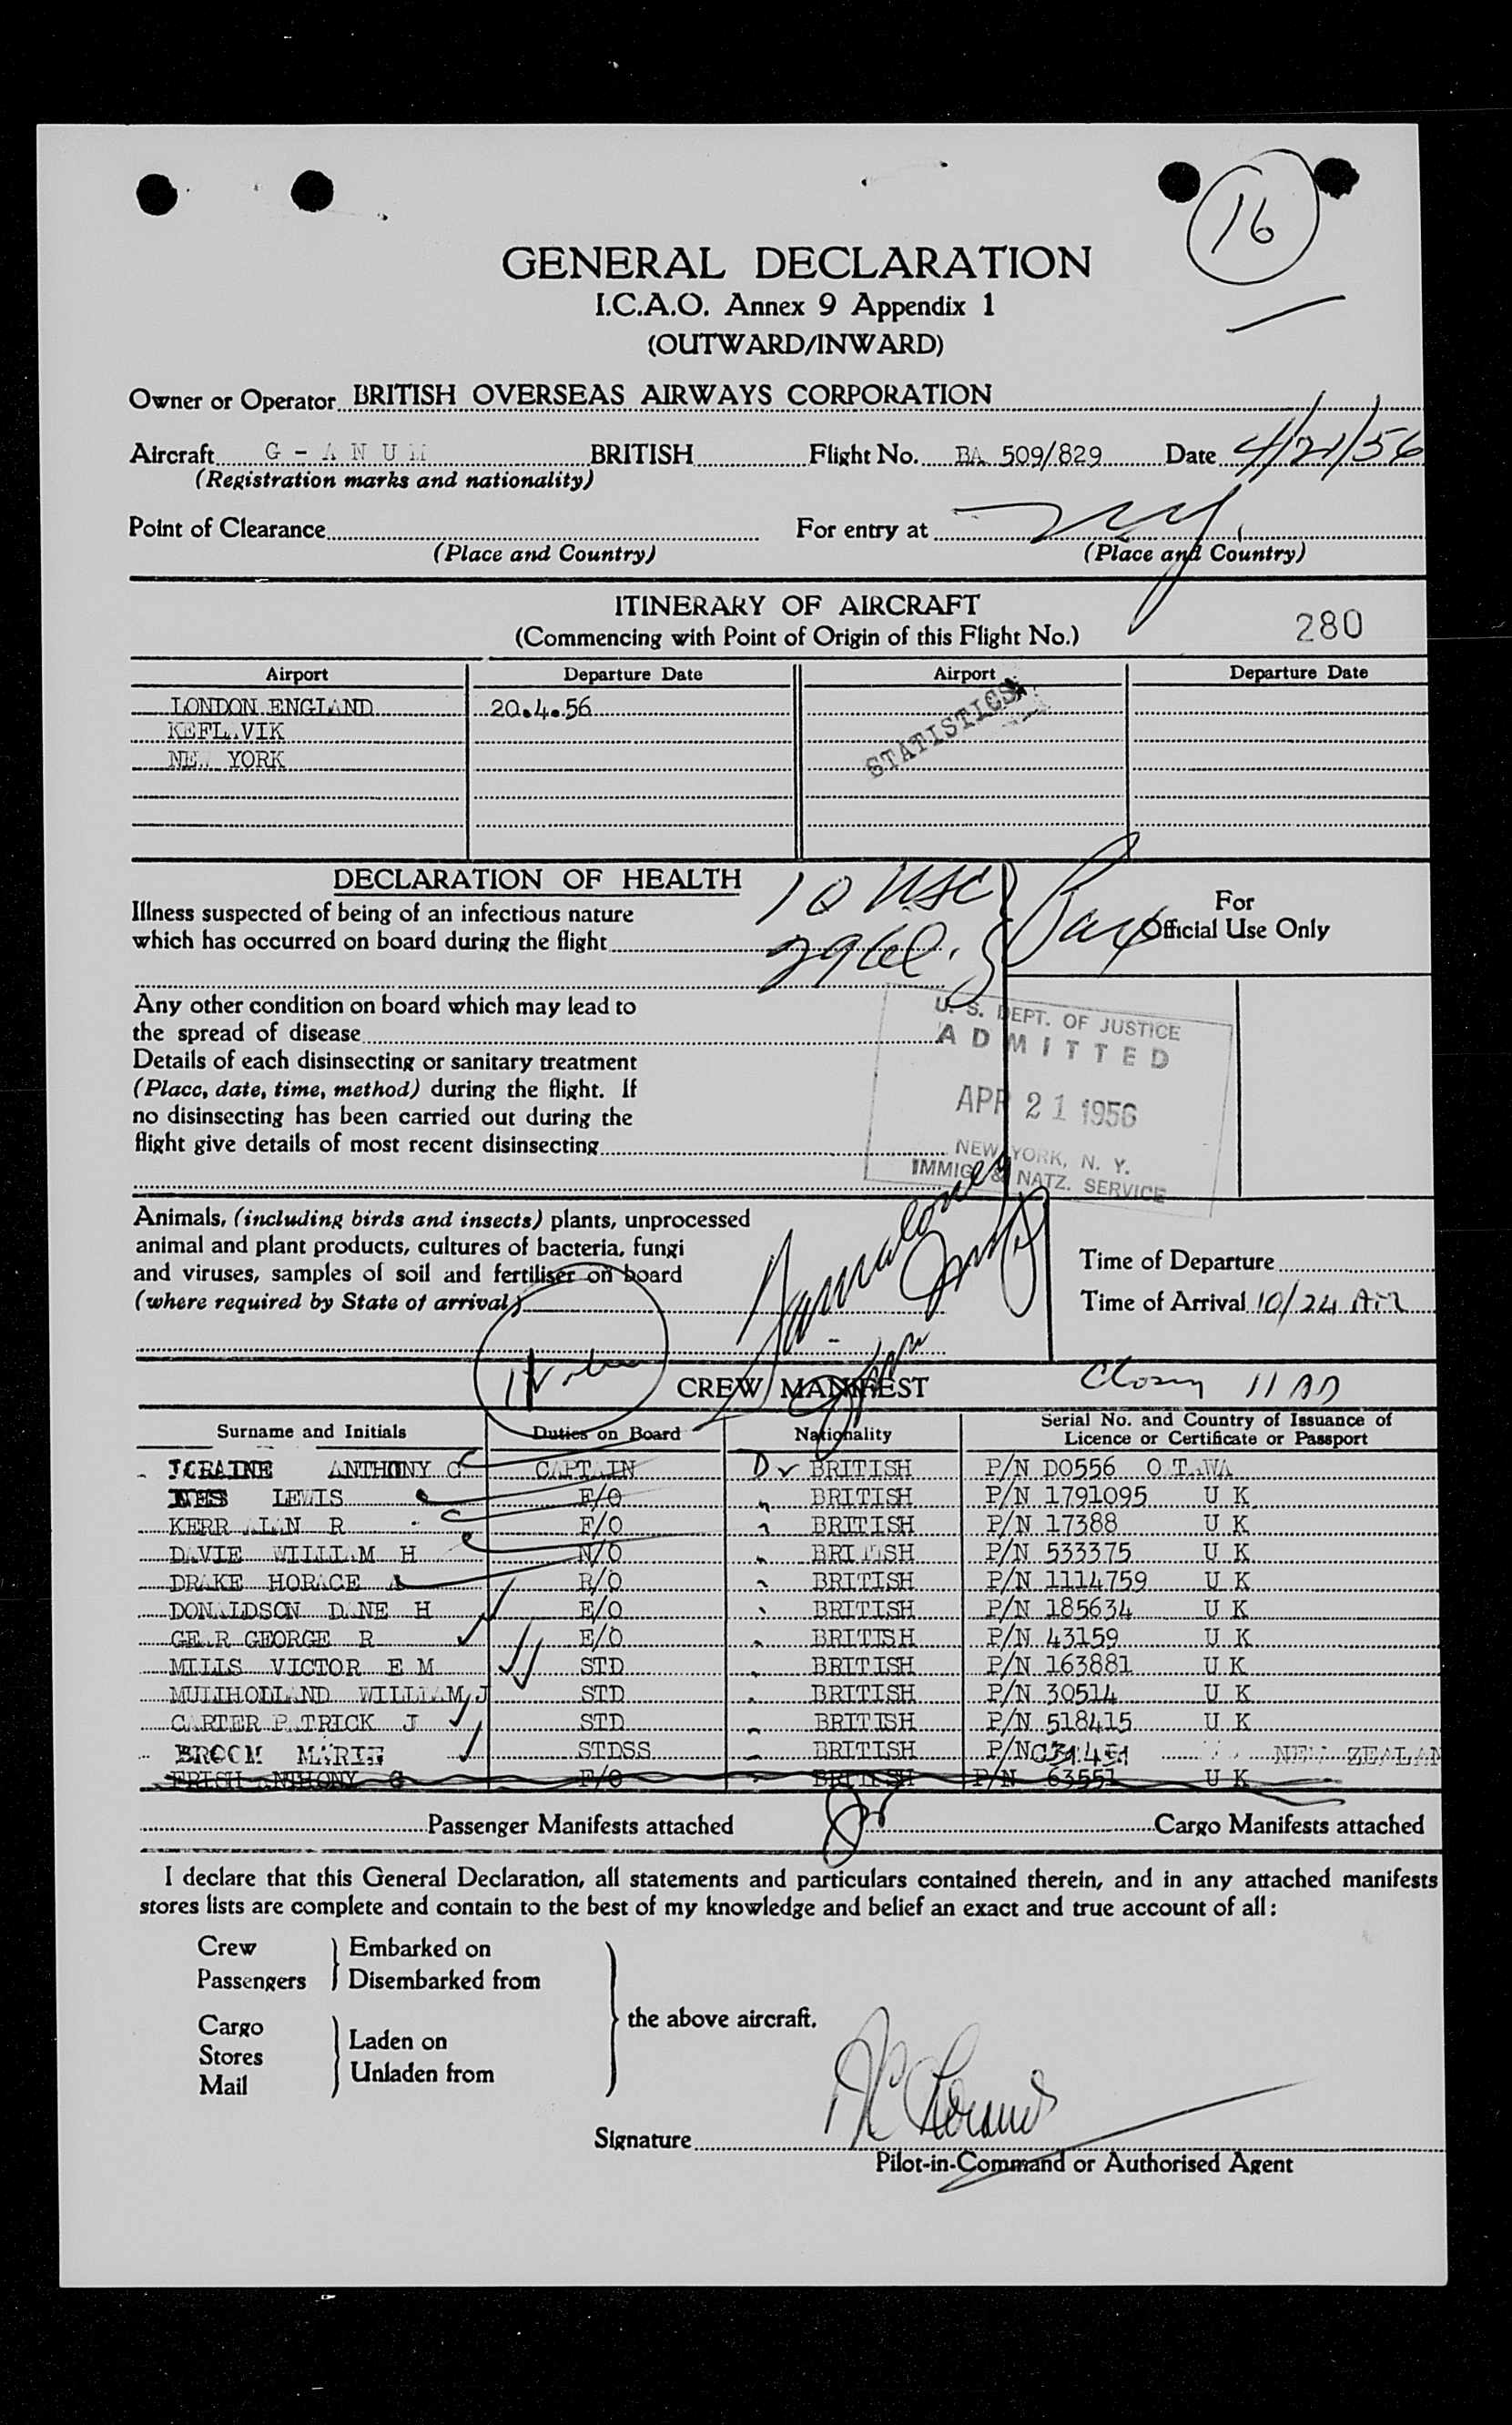 16
GENERAL DECLARATION
I.C.A.O. Annex 9 Appendix 1
(OUTWARD/INWARD)
Owner or Operator BRITISH OVERSEAS AIRWAYS CORPORATION
Aircraft G - A N U M BRITISH Flight No. BA 509/829 Date 4/21/56
(Registration marks and nationality)
Point of Clearance For entry at NY
(Place and Country) (Place and Country)
ITINERARY OF AIRCRAFT
(Commencing with Point of Origin of this Flight No.) 280
Airport Departure Date Airport Departure Date
LONDON ENGLAND 20.4.56
KEFLAVIK
NEW YORK
STATISTICS
DECLARATION OF HEALTH
10 USC
For
Official Use Only
Illness suspected of being of an infectious nature
which has occurred on board during the flight
Any other condition on board which may lead to
the spread of disease
Details of each disinsecting or sanitary treatment
(Place, date, time, method) during the flight. If
no disinsecting has been carried out during the
flight give details of most recent disinsecting
U. S. DEPT. OF JUSTICE
ADMITTED
APR 21 1956
NEW YORK, N. Y.
IMMIG. & NATZ. SERVICE
Animals, (including birds and insects) plants, unprocessed
animal and plant products, cultures of bacteria, fungi
and viruses, samples of soil and fertiliser on board
(where required by State of arrival)
Time of Departure
Time of Arrival 10/24 AM
CREW MANIFEST
Surname and Initials Duties on Board Nationality Serial No. and Country of Issuance of
Licence or Certificate or Passport
LORAINE ANTHONY C CAPTAIN BRITISH P/N DO556 OTTAWA
LEWIS F/O BRITISH P/N 1791095 U K
KERR ALAN R F/O BRITISH P/N 17388 U K
DAVIE WILLIAM H N/O BRITISH P/N 533375 U K
DRAKE HORACE A R/O BRITISH P/N 1114759 U K
DONALDSON DANE H E/O BRITISH P/N 185634 U K
GEAR GEORGE R E/O BRITISH P/N 43159 U K
MILLS VICTOR E M STD BRITISH P/N 163881 U K
MULHOLLAND WILLIAM J STD BRITISH P/N 30514 U K
CARTER PATRICK J STD BRITISH P/N 518415 U K
BROOM MARIE STDSS BRITISH P/N NEW ZEALAN
ANTHONY G F/O BRITISH P/N 63551 U K
Passenger Manifests attached Cargo Manifests attached
I declare that this General Declaration, all statements and particulars contained therein, and in any attached manifests
stores lists are complete and contain to the best of my knowledge and belief an exact and true account of all:
Crew Embarked on
Passengers Disembarked from
the above aircraft.
Cargo
Stores Laden on
Mail Unladen from
Signature
Pilot-in-Command or Authorised Agent